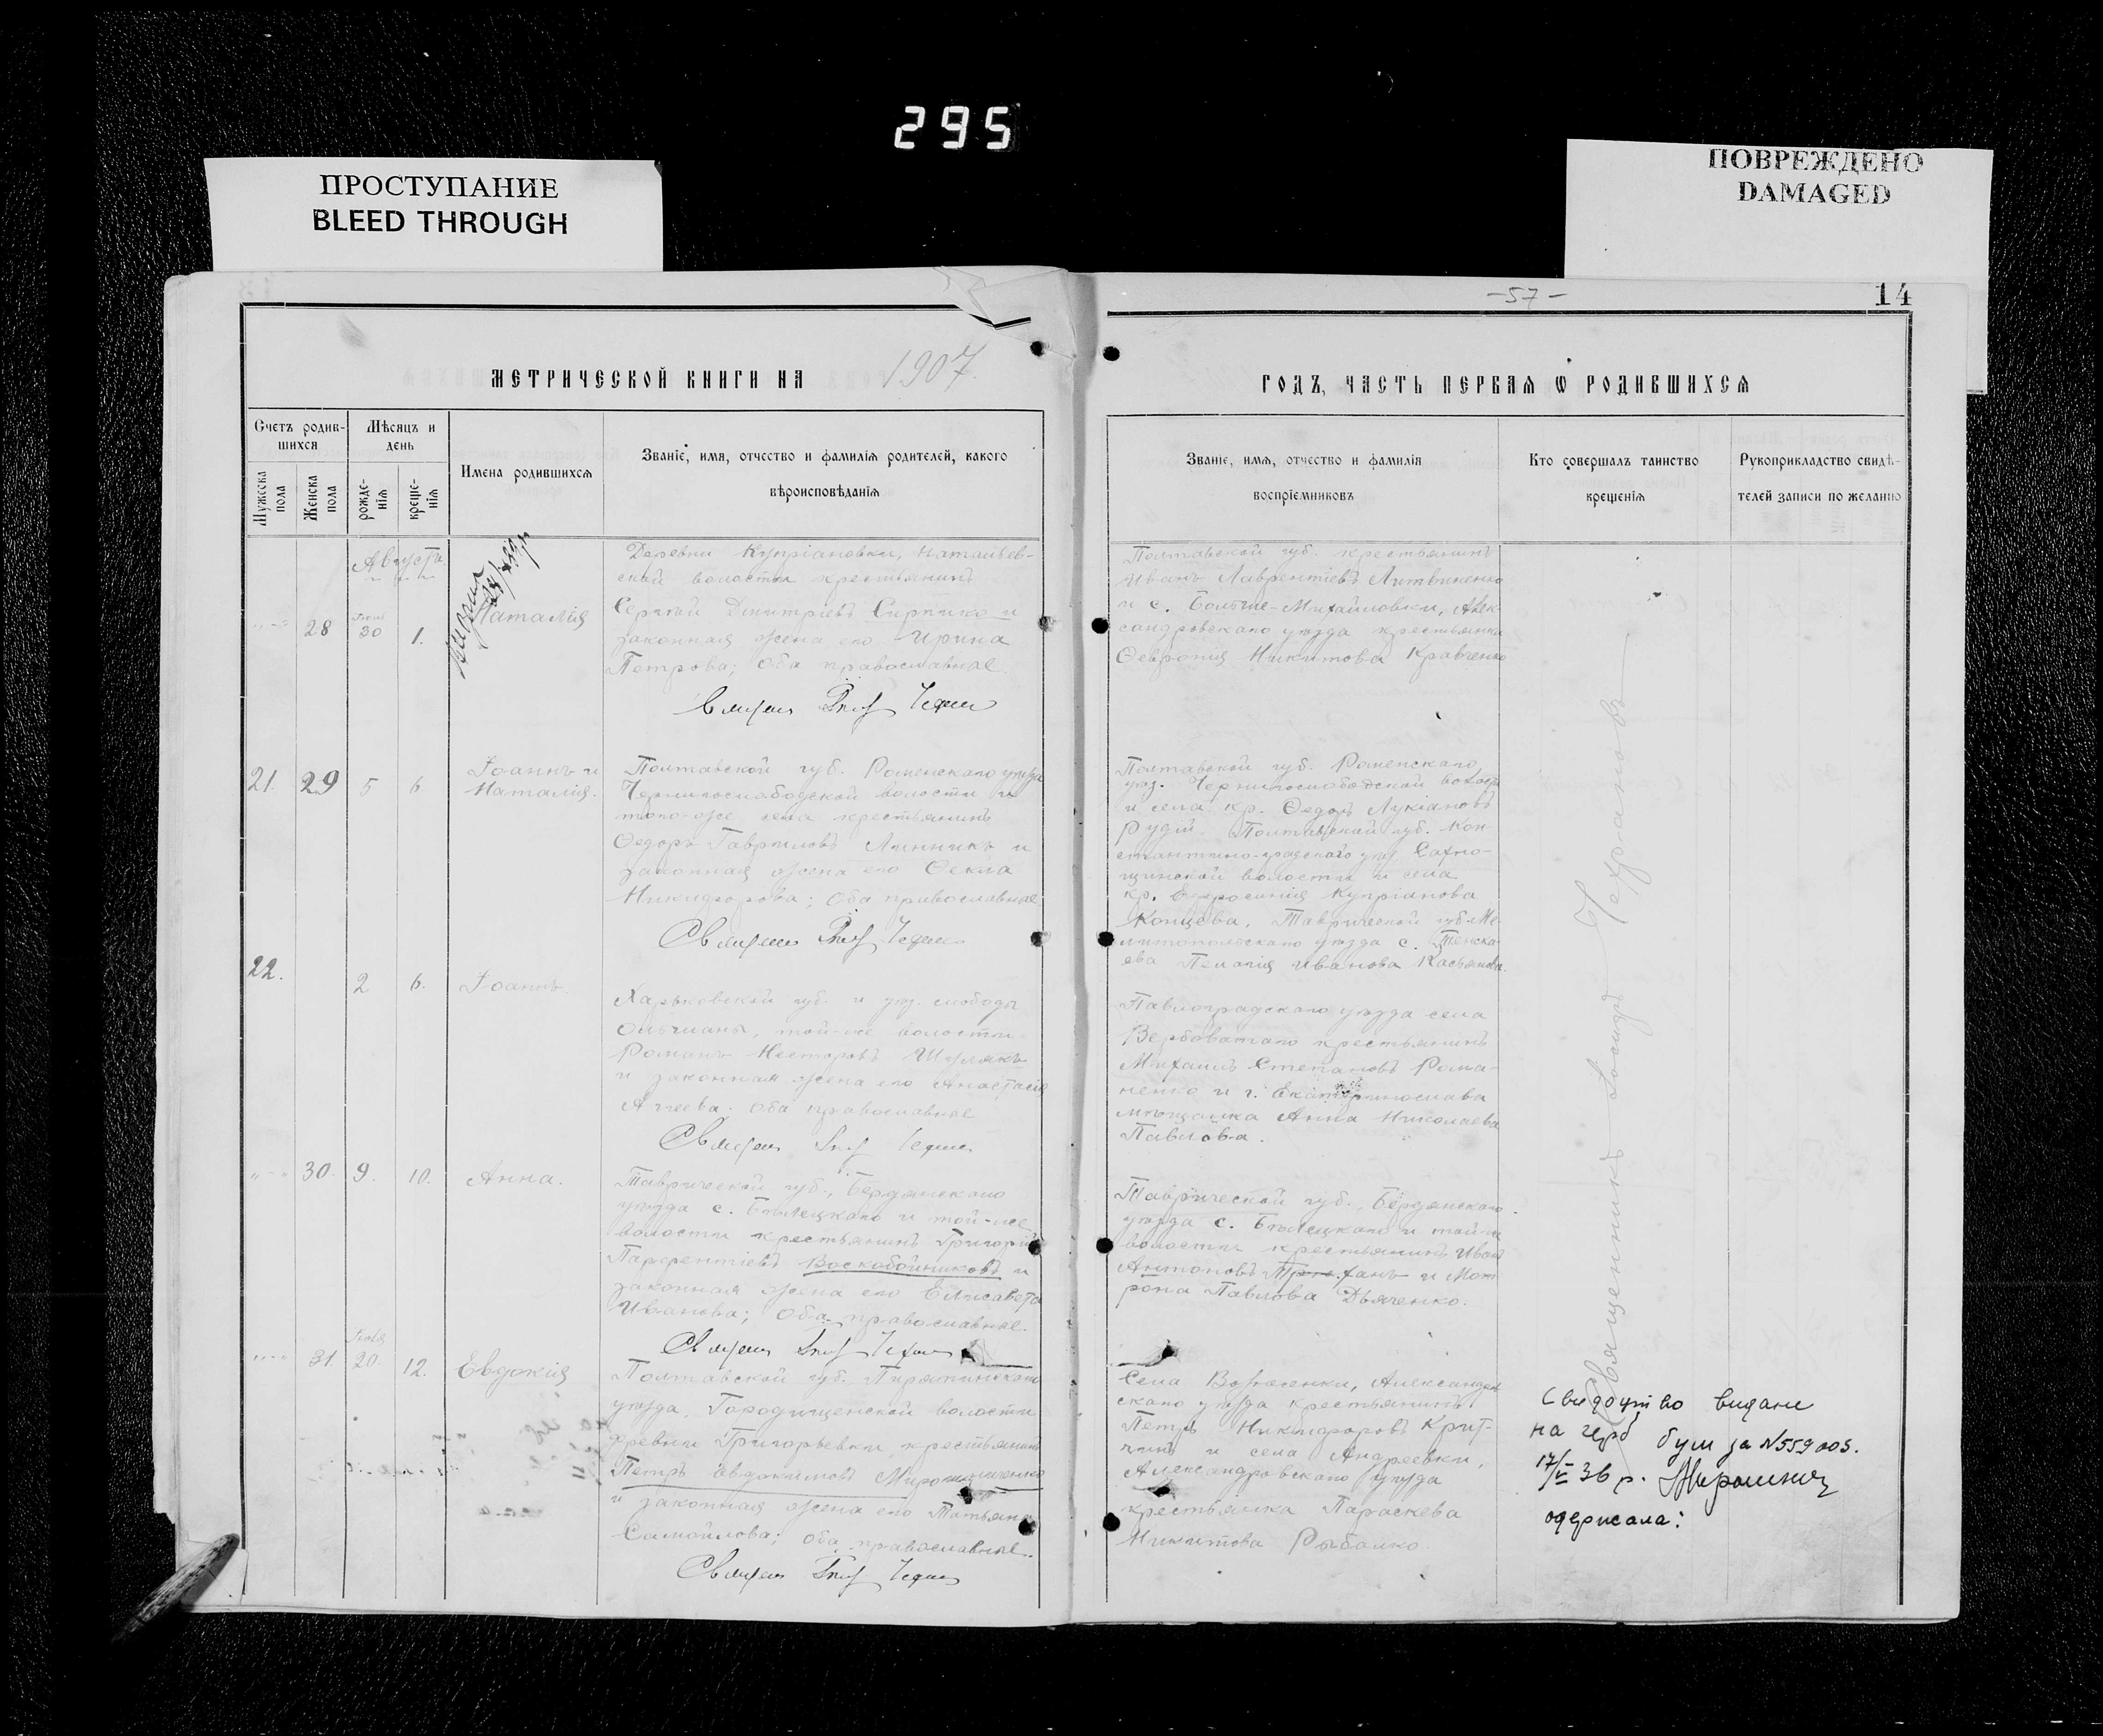 295
ПРОСТУПАНИЕ
BLEED THROUGH
ПОВРЕЖДЕНО
DAMAGED
-57-
14
МЕТРИЧЕСКОЙ КНИГИ НА 1907
ГОДЪ, ЧАСТЬ ПЕРВАЯ Ѿ РОДИВШИХСЯ
Счетъ родив-
шихся
Мѣсяцъ и
день
Мужеска
пола
Женска
пола
рожде-
нія
креще-
нія
Имена родившихся
Званіе, имя, отчество и фамилія родителей, какого
вѣроисповѣданія
Званіе, имя, отчество и фамилія
воспріемниковъ
Кто совершалъ таинство
крещенія
Рукоприкладство свидѣ-
телей записи по желанію
Августа
28
30
1.
Наталія
Деревни Купріановки, Наталіев-
ской волости крестьянинъ
Сергій Димитріевъ Сирпико и
законная жена его Ирина
Петрова; оба православные.
Полтавской губ. крестьянинъ
Иванъ Лаврентіевъ Литвиненко
и с. Больше-Михайловки, Алек-
сандровскаго уѣзда крестьянка
Ѳевронія Никитова Кравченко
21.
29
5
6
Іоаннъ и
Наталія.
Полтавской губ. Роменскаго уѣзда
Чернигослободской волости и
того-же села крестьянинъ
Ѳедоръ Гавриловъ Линникъ и
законная жена его Ѳекла
Никифорова; оба православные.
Полтавской губ. Роменскаго
уѣз. Чернигослободской волости
и села кр. Ѳедоръ Лукіановъ
Рудій. Полтавской губ. Кон-
стантино-градскаго уѣз. Сахно-
щинской волости и села
кр. Евфросинія Купріанова
Концева. Таврической губ. Ме-
литопольскаго уѣзда с.
Пелагія Иванова Касьянова.
22.
2
6.
Іоаннъ.
Харьковской губ. и уѣз. слободы
Ольшаны, той-же волости
Романъ Несторовъ
и законная жена его Анастасія
Аггеева; оба православные
Павлоградскаго уѣзда села
Вербоватаго крестьянинъ
Михаилъ Степановъ Рома-
ненко и г. Екатеринослава
мѣщанка Анна Николаева
Павлова.
30.
9.
10.
Анна.
Таврической губ., Бердянскаго
уѣзда с. Бѣлецкаго и той-же
волости крестьянинъ Григорій
Парфентіевъ Воскобойниковъ и
законная жена его Елисавета
Иванова; оба православные.
Таврической губ., Бердянскаго
уѣзда с. Бѣлецкаго и той-же
волости крестьянинъ Иванъ
Антоновъ и Мат
рона Павлова Дьяченко.
31.
20.
12.
Евдокія
Полтавской губ. Пирятинскаго
уѣзда, Городищенской волости
деревни Григорьевки крестьянинъ
Петръ Евдокимовъ Мирошниченко
и законная жена его Татьяна
Самойлова; оба православные.
Села Вознесенки, Александров
скаго уѣзда крестьянинъ
Петръ Никифоровъ
и села Андреевки,
Александровскаго уѣзда
крестьянка Параскева
Никитова Рыбалко.
Священникъ
Свидоцтво видане
на герб бум за N559005.
17/V 36 р.
одержала: